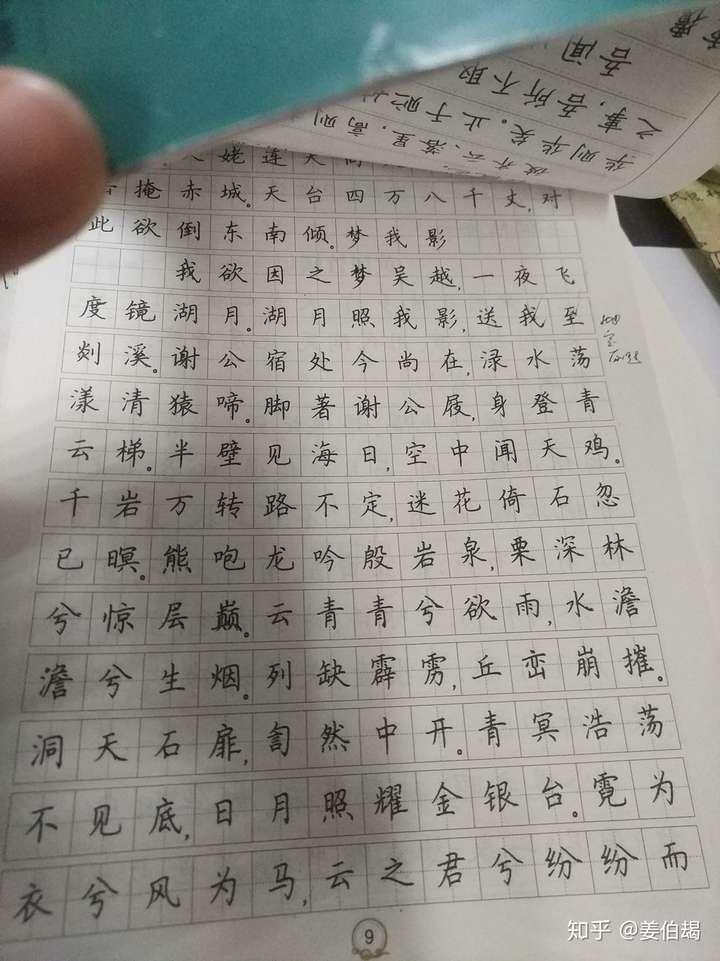 落星,高则
华则华矣。止于贮
之事,吾所不取
吾闻
姥连天
掩赤城。天台四万八千丈,对
此欲倒东南倾。梦我影
我欲因之梦吴越,一夜飞
度镜湖月。湖月照我影,送我至
剡溪。谢公宿处今尚在,渌水荡
漾清猿啼。脚著谢公屐,身登青
云梯。半壁见海日,空中闻天鸡。
千岩万转路不定,迷花倚石忽
已暝。熊咆龙吟殷岩泉,栗深林
兮惊层巅。云青青兮欲雨,水澹
澹兮生烟。列缺霹雳,丘峦崩摧。
洞天石扉,訇然中开。青冥浩荡
不见底,日月照耀金银台。霓为
衣兮风为马,云之君兮纷纷而
9
知乎